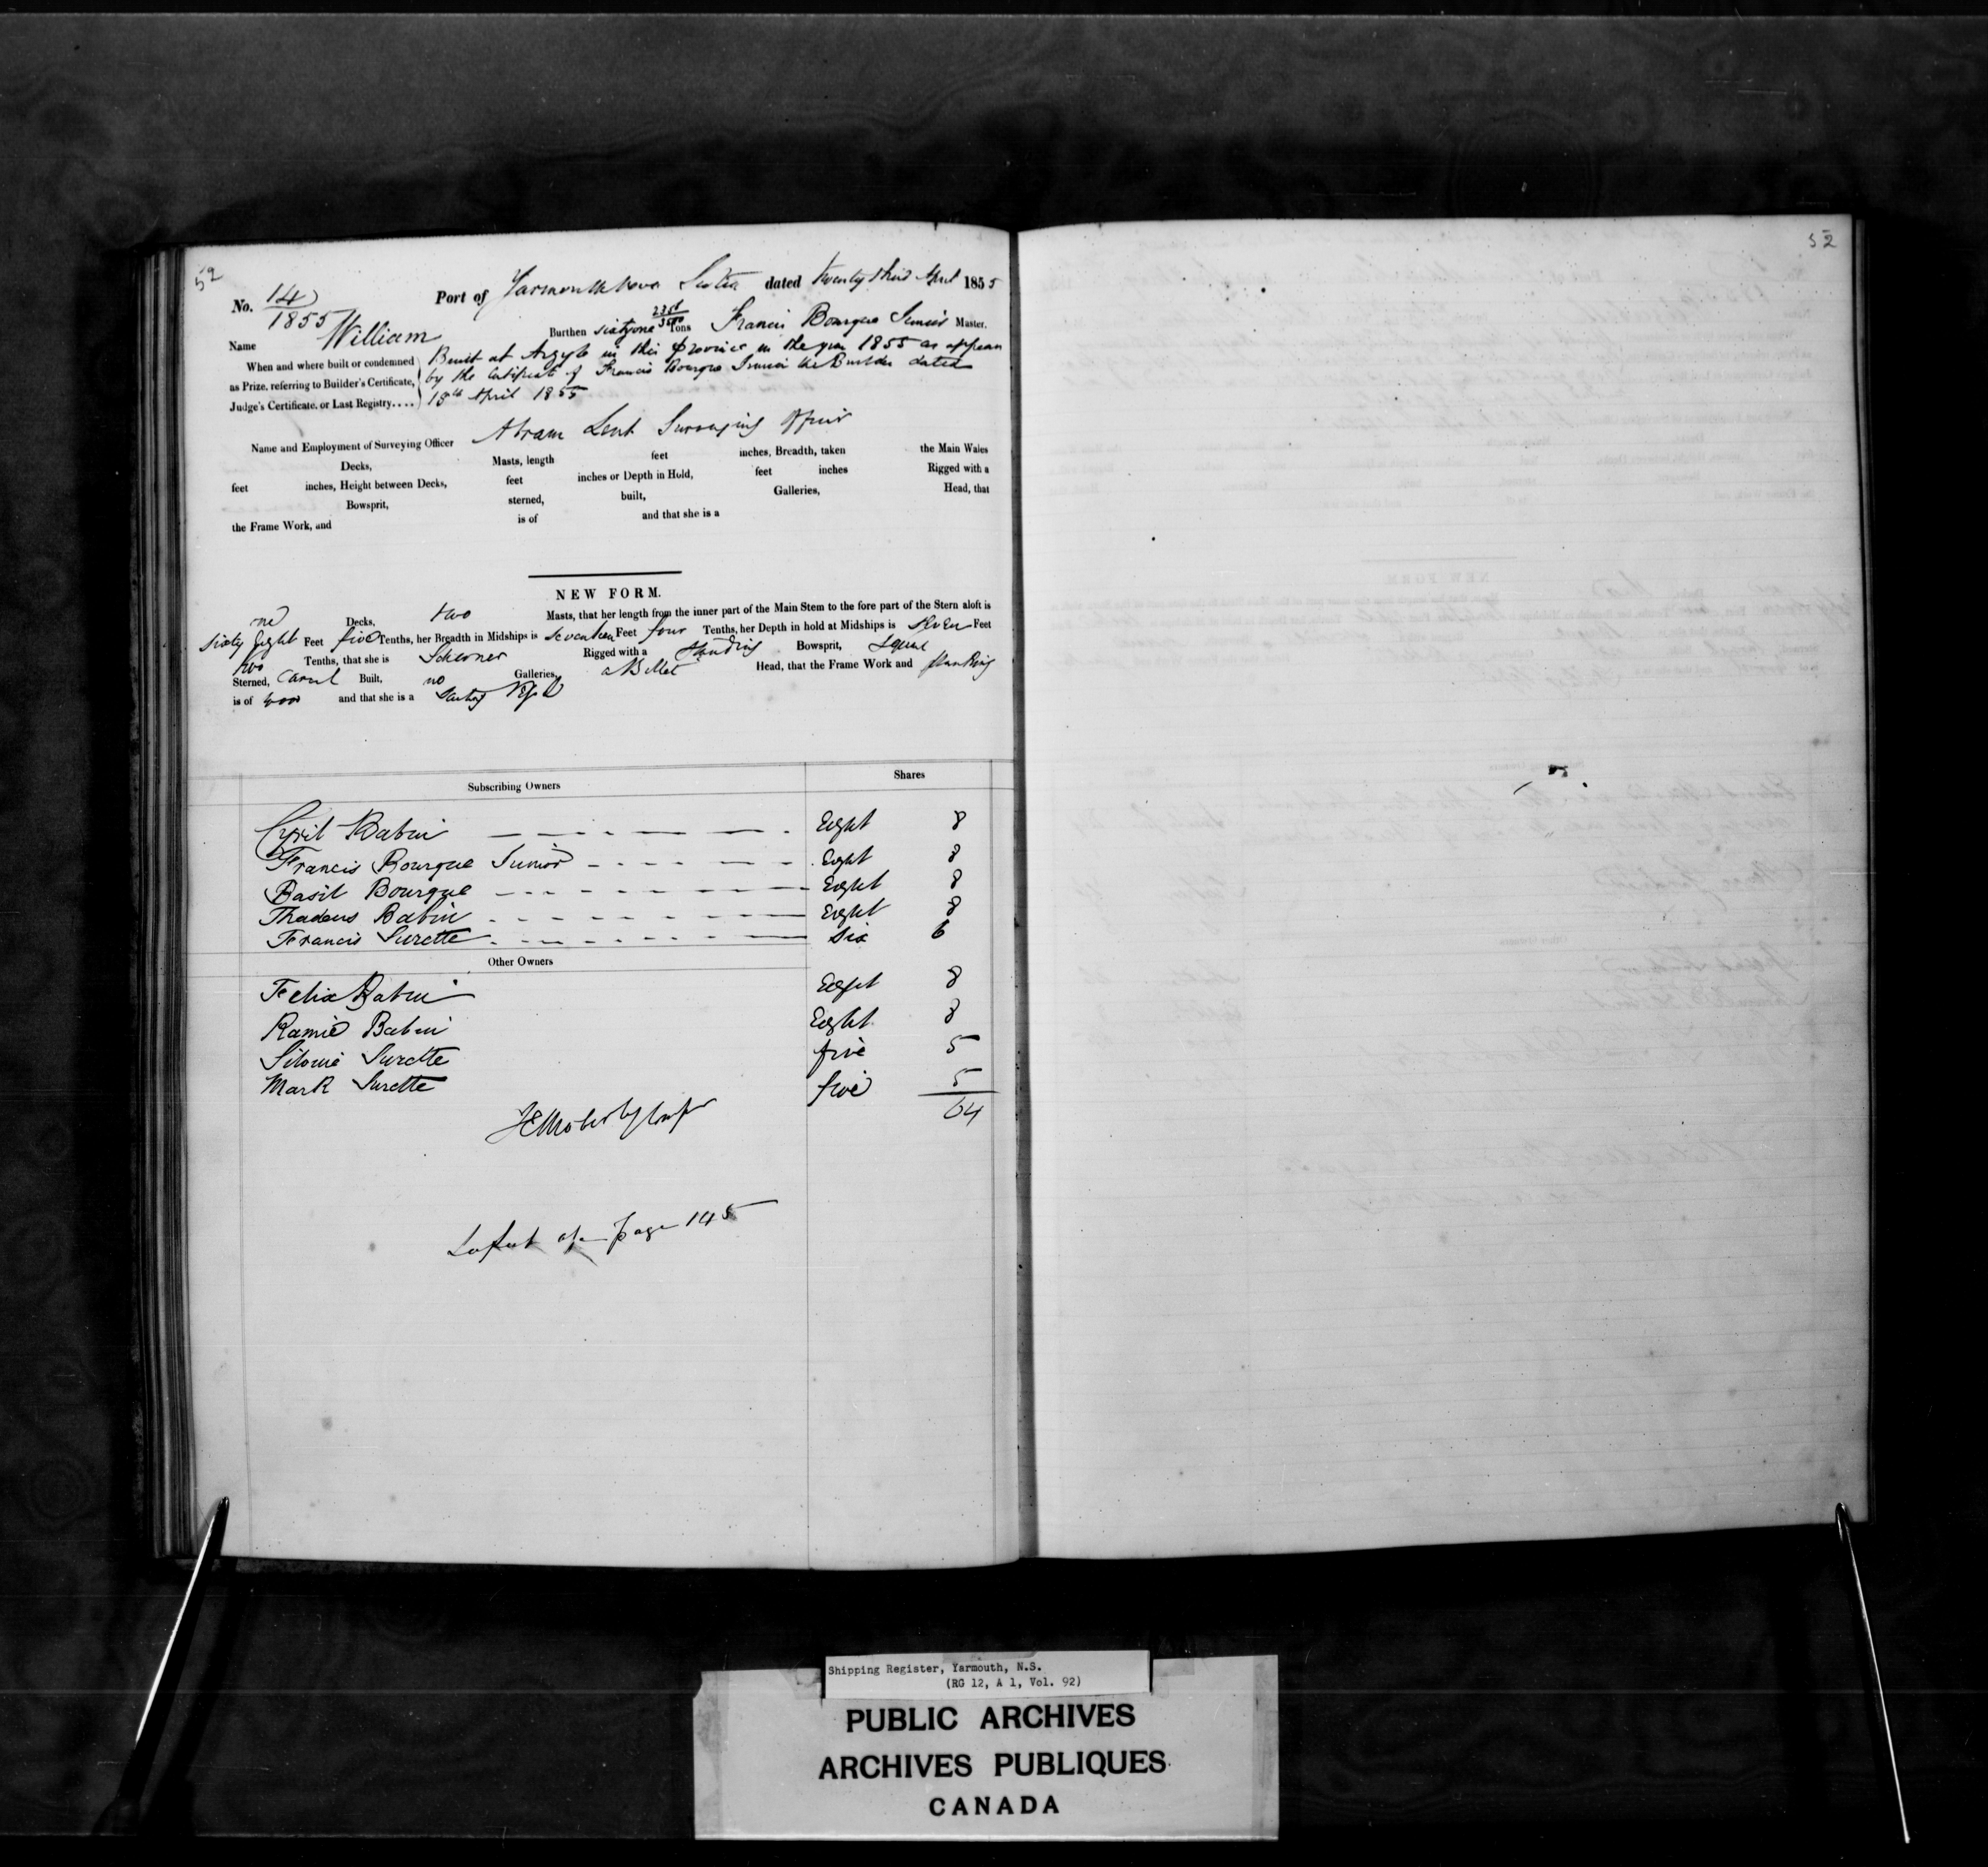 52
52
No. 14/1855 Port of Yarmouth Nova Scotia dated twenty third April 1855
Name William Burthen sixty one Tons Francis Bourque Junior Master.
When and where built or condemned as Prize, referring to Builder's Certificate, Judge's Certificate, or Last Registry....
Built at Argyle in this Province in the year 1855 as appears
by the Certificate of Francis Bourque Junior the Builder dated
18th April 1855
Name and Employment of Surveying Officer Abram Lent Surveying Officer
Decks, Masts, length feet inches, Breadth, taken the Main Wales
feet inches, Height between Decks, feet inches or Depth in Hold, feet inches Rigged with a
Bowsprit, sterned, built, Galleries, Head, that
the Frame Work, and is of and that she is a
NEW FORM.
Decks, two Masts, that her length from the inner part of the Main Stem to the fore part of the Stern aloft is
sixty Eight Feet five Tenths, her Breadth in Midships is seventeen Feet four Tenths, her Depth in hold at Midships is seven Feet
two Tenths, that she is Schooner Rigged with a standing Bowsprit, Square
Sterned, Carvel Built, no Galleries, a Billet Head, that the Frame Work and planking
is of wood and that she is a
Subscribing Owners Shares
Cyril Babin Eight 8
Francis Bourque Junior Eight 8
Basil Bourque Eight 8
Thadeus Babin Eight 8
Francis Surette Six 6
Other Owners
Felix Babin Eight 8
Ramie Babin Eight 8
Surette five 5
Mark Surette five 5
64
page 145
Shipping Register, Yarmouth, N.S.
(RG 12, A 1, Vol. 92)
PUBLIC ARCHIVES
ARCHIVES PUBLIQUES
CANADA